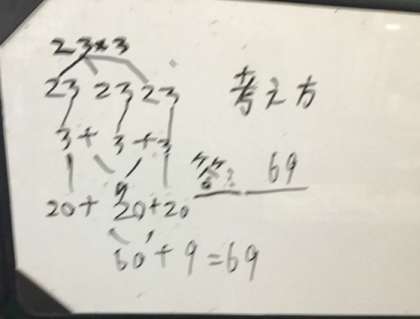 23×3
23 23 23
3+3+3
9
20+20+20
60+9=69
考え方
答え 69